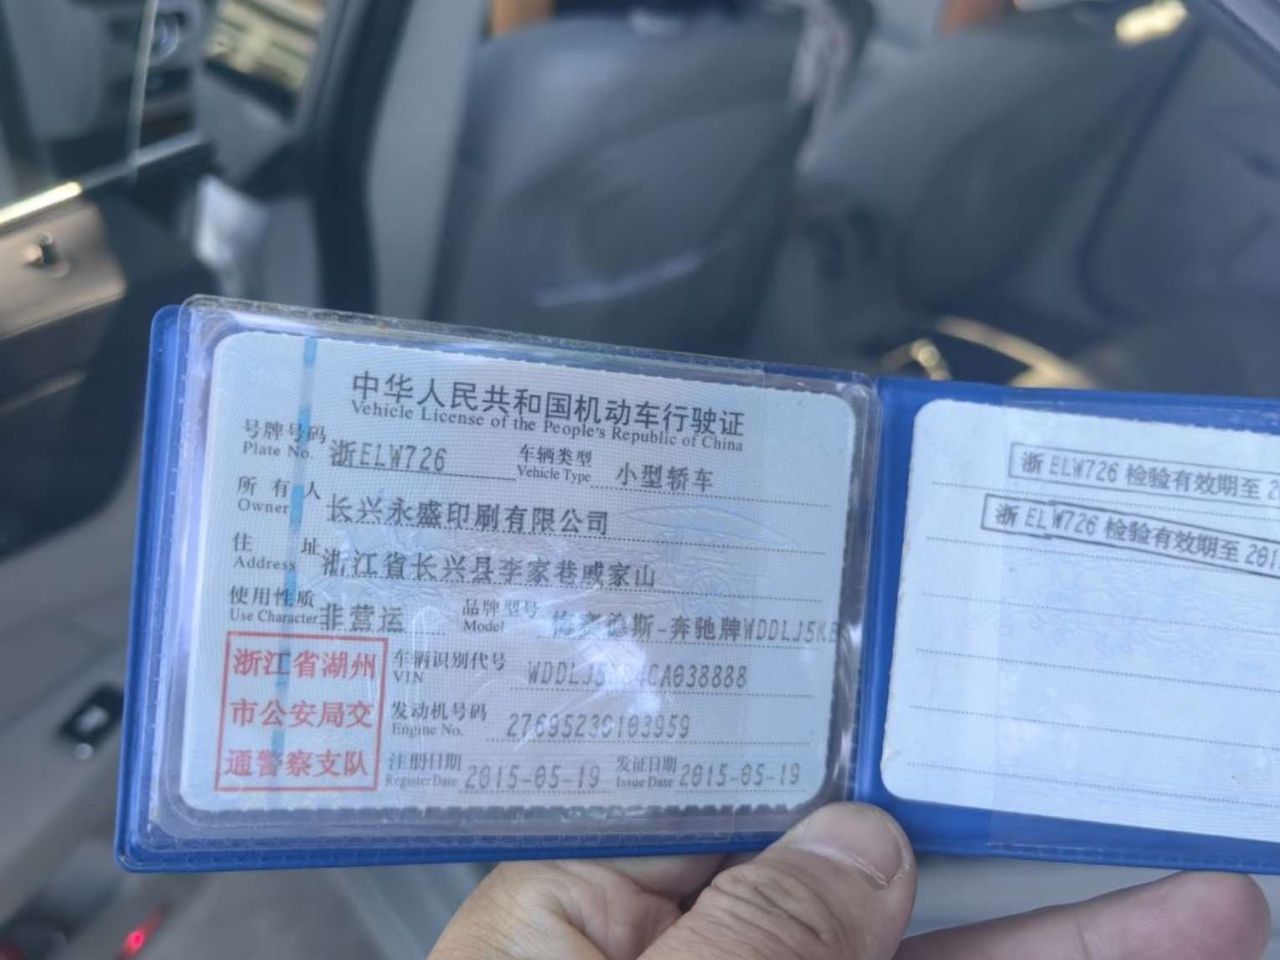 中华人民共和国机动车行驶证
Vehicle License of the People's Republic of China
号牌号码 浙ELW726 车辆类型 小型轿车
Plate No. Vehicle Type
所有人 长兴永盛印刷有限公司
Owner
住址 浙江省长兴县李家巷戚家山
Address
使用性质 非营运 品牌型号 梅赛德斯-奔驰牌WDDLJ5KB
Use Character Model
浙江省湖州
市公安局交
通警察支队
车辆识别代号
VIN
发动机号码
Engine No.
注册日期 2015-05-19 发证日期 2015-05-19
Register Date Issue Date
浙ELW726 检验有效期至 2
浙ELW726 检验有效期至 201